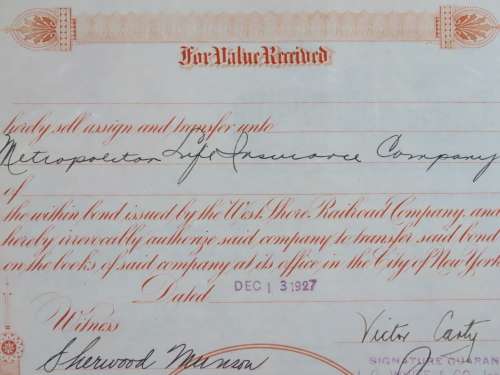 For Value Received
hereby sell assign and transfer unto
Metropolitan Life Insurance Company
of
the within bond issued by the West Shore Railroad Company, and
hereby irrevocably authorize said company to transfer said bond
on the books of said company at its office in the City of New York
Dated DEC 13 1927
Witness
Victor Carty
Sherwood Munson
SIGNATURE GUARAN